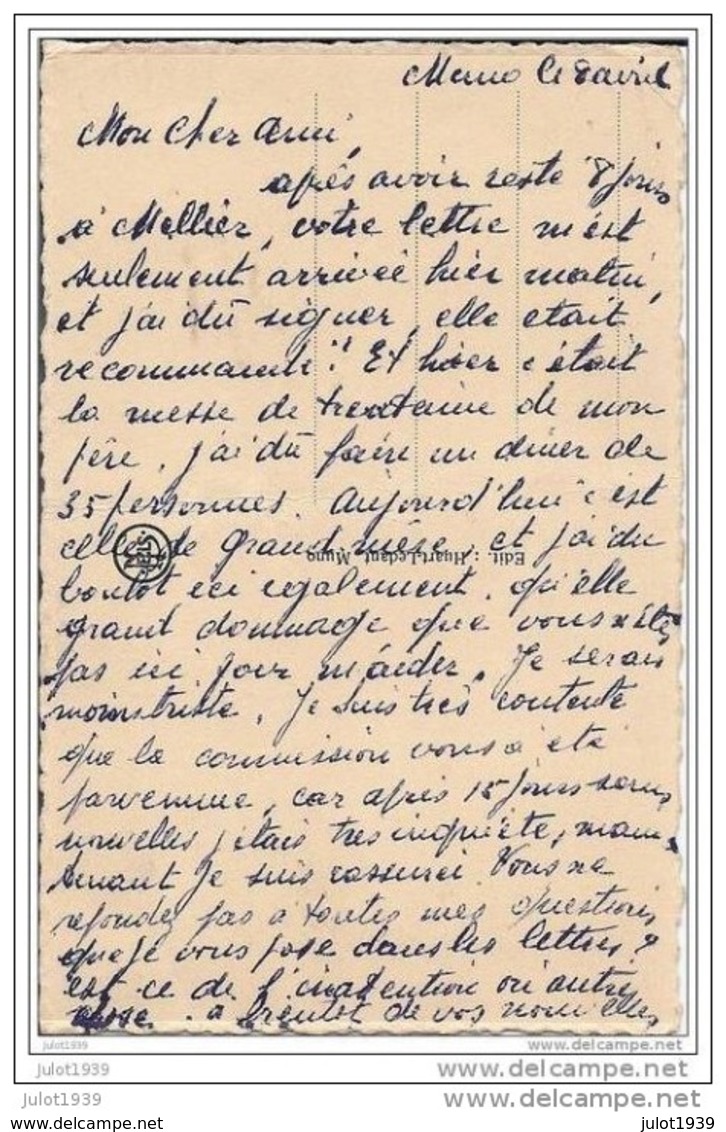 Muno le 8 avril
Mon Cher Ami,
après avoir resté 8 jours
à Mellier, votre lettre m'est
seulement arrivée hier matin,
et j'ai dû signer, elle etait
recommandé!! Et hier c'était
la messe de trentaine de mon
père, j'ai dû faire un diner de
35 personnes. Aujourd'hui c'est
celle de grand-mère et j'ai du
Edit.: Huart-Ledant Muno
NELS
boulot ici egalement. qu'elle
grand dommage que vous n'êtes
pas ici pour m'aider. Je serais
moins triste. Je suis très contente
que la commission vous a été
parvenue, car après 15 jours sans
nouvelles j'étais très inquiète, main-
tenant je suis rassurée. Vous ne
repondez pas à toutes mes questions
que je vous pose dans les lettres?
est ce de l'inatention ou autre
chose. à bientot de vos nouvelles
julot1939
www.delcampe.net
julot1939
www.delcampe.net
julot1939
www.delcampe.net
julot1939